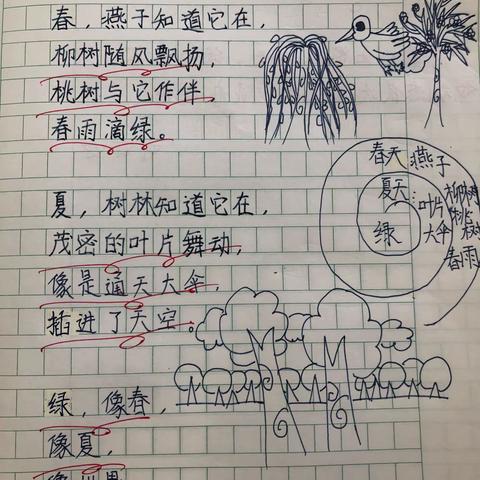 春，燕子知道它在，
柳树随风飘扬，
桃树与它作伴，
春雨滴绿。
春天
燕子
柳树
桃树
春雨
夏天
叶片
大伞
绿
夏，树林知道它在，
茂密的叶片舞动，
像是通天大伞，
插进了天空。
绿，像春，
像夏，